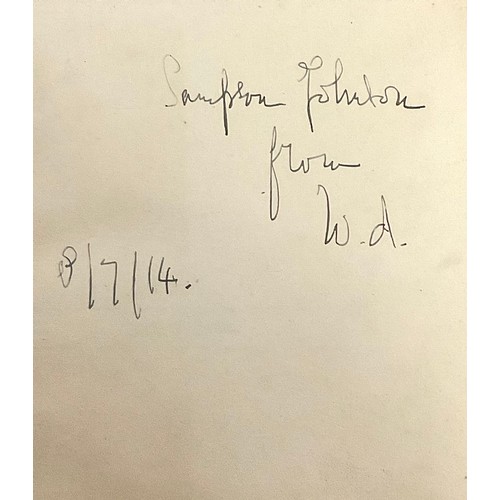 Sampson Johnson
from
W.A.
8/7/14.